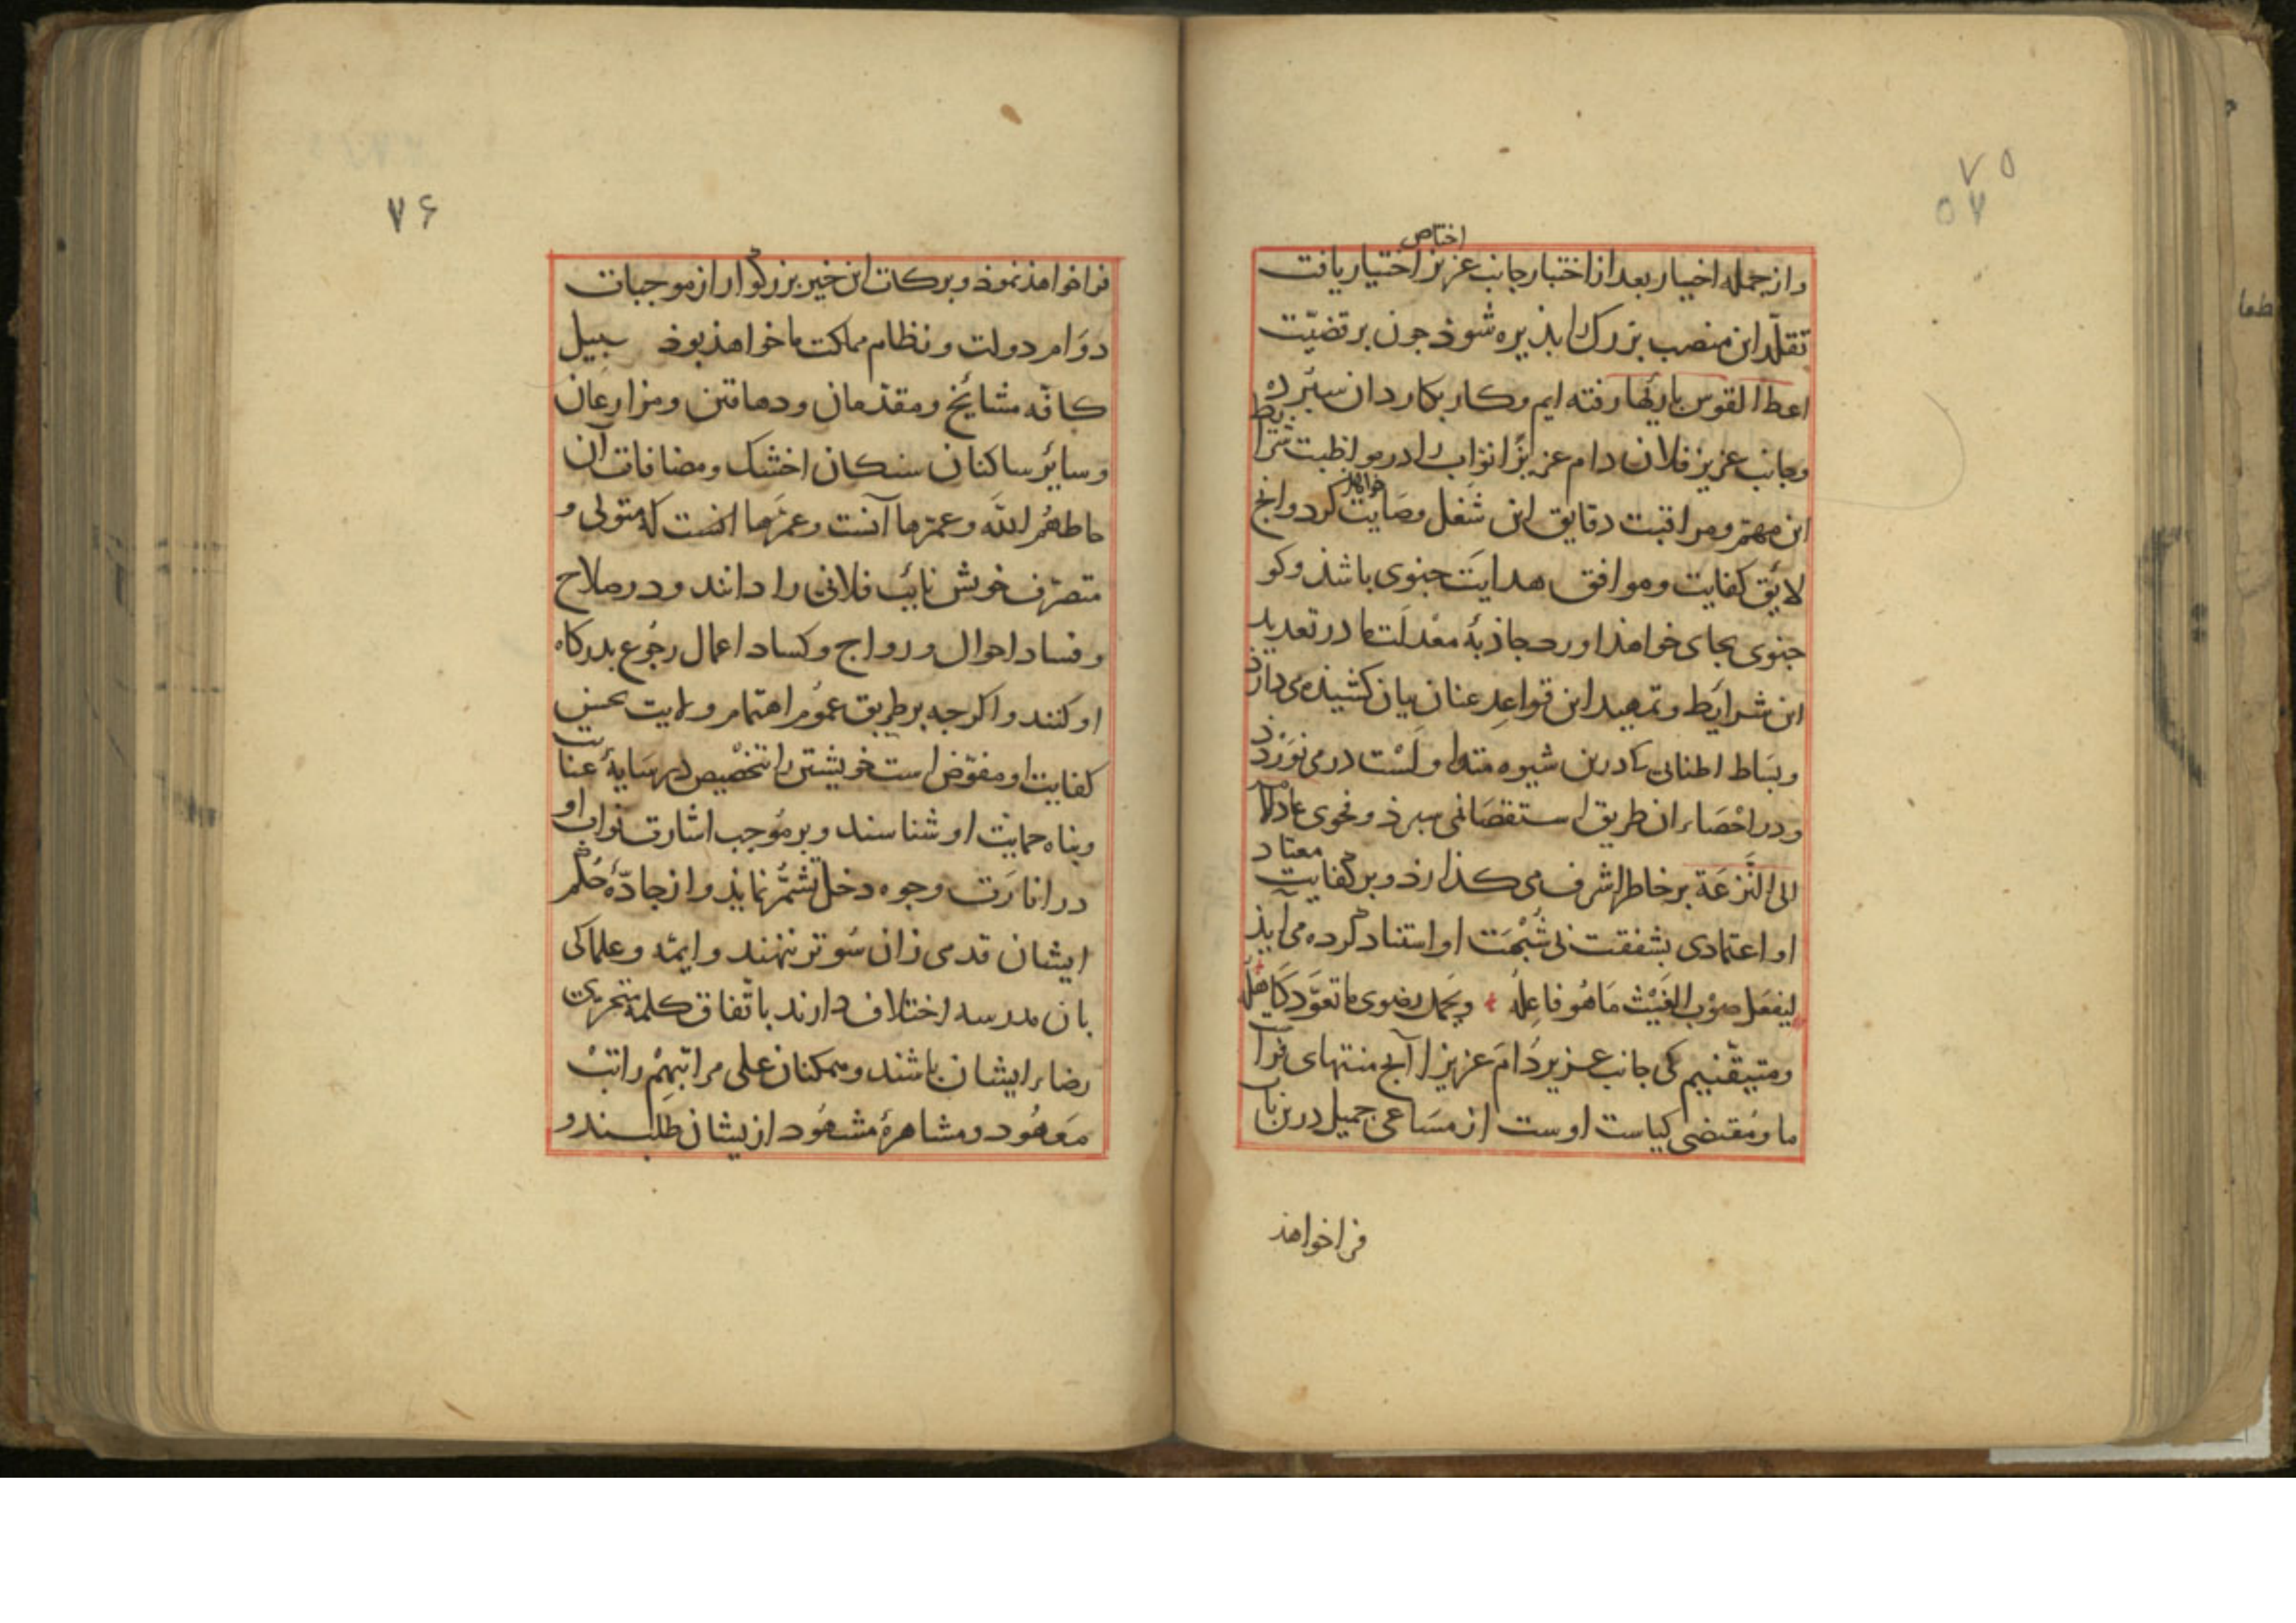 ۷۵
۵۷
اختاص
و از جمله اخیار بعد از اختبار جانب عزیز اختیار یافت
تقلّد این منصب بزرک را بذیره شوذ جون بر قضیّت
اعطا القوس باریها رفته ایم و کار بکاردان سبرده
و جانب عزیز فلان دام عزیزًا نوّاب را در مواظبت شرایط
این مهمّ و مراقبت دقایق این شغل وصَایت خواهذ کرد و انج
لایق کفایت و موافق هدایَت جنوی باشذ و کو
جنوی بجای خواهذ اورد جاذبهٔ معْدلَت ما در تعدید
این شرایَط و تمهید این قواعِد عنان بیان کشیذه می دارذ
و بسَاط اطنابی کادرین شیوه متداولَسْت در می نوَردذ
و در احْصَاء ان طریق استقصا نمی سبرذ و فحوی عاد الامر
الی النَّزعَة بر خاطر اشرف می کذارذ و بر کفایت معتاد
او اعتمادی بشفقت بی شُبْهَت او استناد کرده می آیذ
لیفعَل صوْب الغَیْث مَا هُو فاعِلُه و یحمل رضوی ما تعوّد کَاهلُه
و متیقّنیم کی جانب عزیر دَامَ عزیزا آنج منتهای
ما و مُقتضی کیاست اوست از مسَاعی جمیل درین باب
فراخواهذ
۷۶
فرا خواهذ نموذ و برکات این خیر بزرکوار از موجبات
دوَام دولت و نظام مملکت ما خواهذ بوذ سبیل
کافّه مشایخ و مقدّمان و دهاقین و مزارعان
و سایرُ ساکنان سنکان اخشک و مضافات آن
حاطهُم اللّه و عمّرها آنست و عمّرها انست که متولی و
متصرّف خویش نایب فلانی را دانند و در صلاح
و فساد احوال و رواج و کساد اعمال رجُوع بدرکاه
او کنند و اکرجه بر طریق عمُوم اهتمام ولایت بحسن
کفایت او مفوّض است خویشتن را بتخْصیص در سَایهٔ عنایت
و بناه حمایت او شناسند و بر مُوجب اشارت نواب او
در اثارَت وجوه دخل تشمُّر نمایذ و از جادّهٔ حُکم
ایشان قدمی زان سُوتر ننهند و ایمّه و علما کی
بان مدرسه اختلاف دارند باتّفاق کلمه متحرّی
رضاء ایشان باشند و متمکنان علی مراتبهِمْ راتبْ
مَعهُود و مشاهرهٔ مشهُود از یشان طلبند و